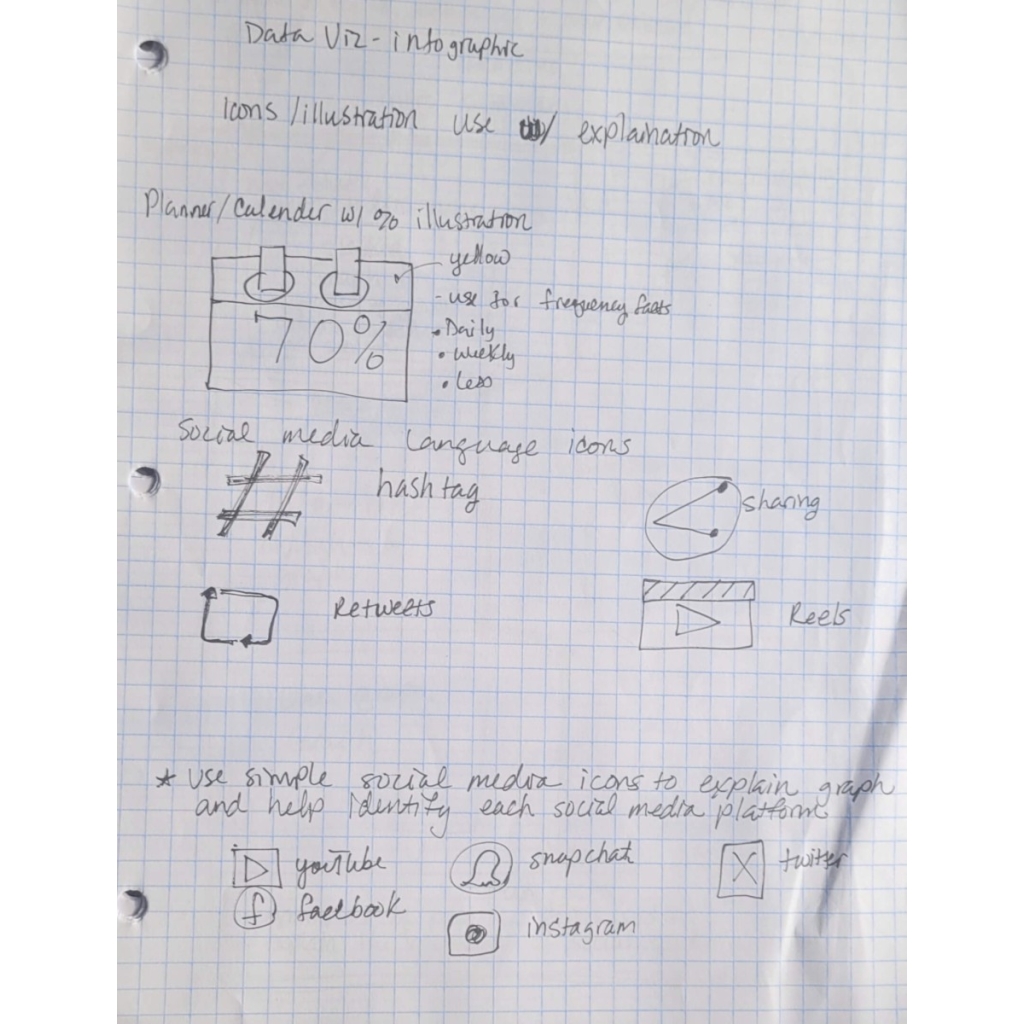 Data Viz - infographic
Icons/illustration use w/ explaination
Planner/Calender w/ % illustration
yellow
- use for frequency facts
70%
• Daily
• weekly
• Less
Social media language icons
# hashtag
sharing
Retweets
Reels
* Use simple social media icons to explain graph
and help identify each social media platform
youTube
snapchat
X twitter
f facebook
instagram